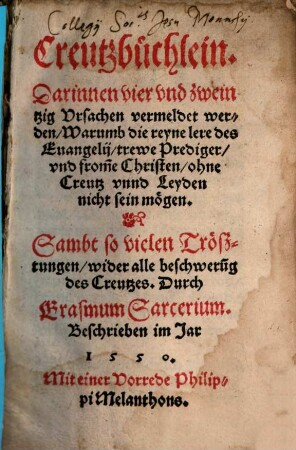 Collegij Soc.tis Jesu Monachij
Creutzbüchlein.
Darinnen vier vnd zwein
tzig Vrsachen vermeldet wer⸗
den/Warumb die reyne lere des
Euangelij/trewe Prediger/
vnd from̃e Christen/ohne
Creutz vnnd Leyden
nicht sein mögen.
Sambt so vielen Trösz⸗
tungen/wider alle beschwerũg
des Creutzes. Durch
Erasmum Sarcerium.
Beschrieben im Jar
1550.
Mit einer Vorrede Philip⸗
pi Melanthons.